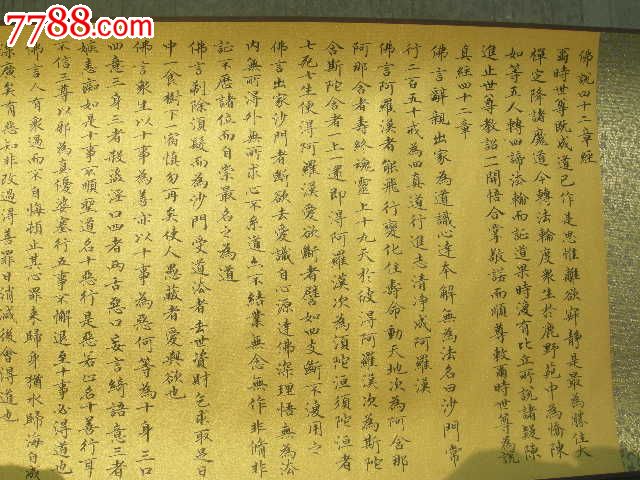 7788.com
佛說四十二章經
爾時世尊既成道已作是思惟離欲寂靜是最為勝住大
禪定降諸魔道今轉法輪度眾生於鹿野苑中為憍陳
如等五人轉四諦法輪而証道果時復有比丘所說諸疑陳
進止世尊教詔一一開悟合掌敬諾而順尊敕爾時世尊為說
真經四十二章
佛言辭親出家為道識心達本解無為法名曰沙門常
行二百五十戒為四真道行進志清淨成阿羅漢
佛言阿羅漢者能飛行變化住壽命動天地次為阿含那
阿那含者壽終魂靈上十九天於彼得阿羅漢次為斯陀
含斯陀含者一上一還即得阿羅漢次為須陀洹須陀洹者
七死七生便得阿羅漢愛欲斷者譬如四支斷不復用之
佛言出家沙門者斷欲去愛識自心源達佛深理悟無為法
內無所得外無所求心不系道亦不結業無念無作非脩非
証不歷諸位而自崇最名之為道
佛言剃除須髮而為沙門受道法者去世資財乞求取足日
中一食樹下一宿慎勿再矣使人愚蔽者愛與欲也
佛言眾生以十事為善亦以十事為惡何等為十身三口
四意三身三者殺盜淫口四者兩舌惡口妄言綺語意三者
嫉恚痴如是十事不順聖道名十惡行是惡若止名十善行耳
不信三尊以邪為真優婆塞行五事不懈退至十事必得道也
佛言人有眾過而不自悔頓止其心罪來歸身猶水歸海自成
深廣矣有惡知非改過得善罪日消滅後會得道也